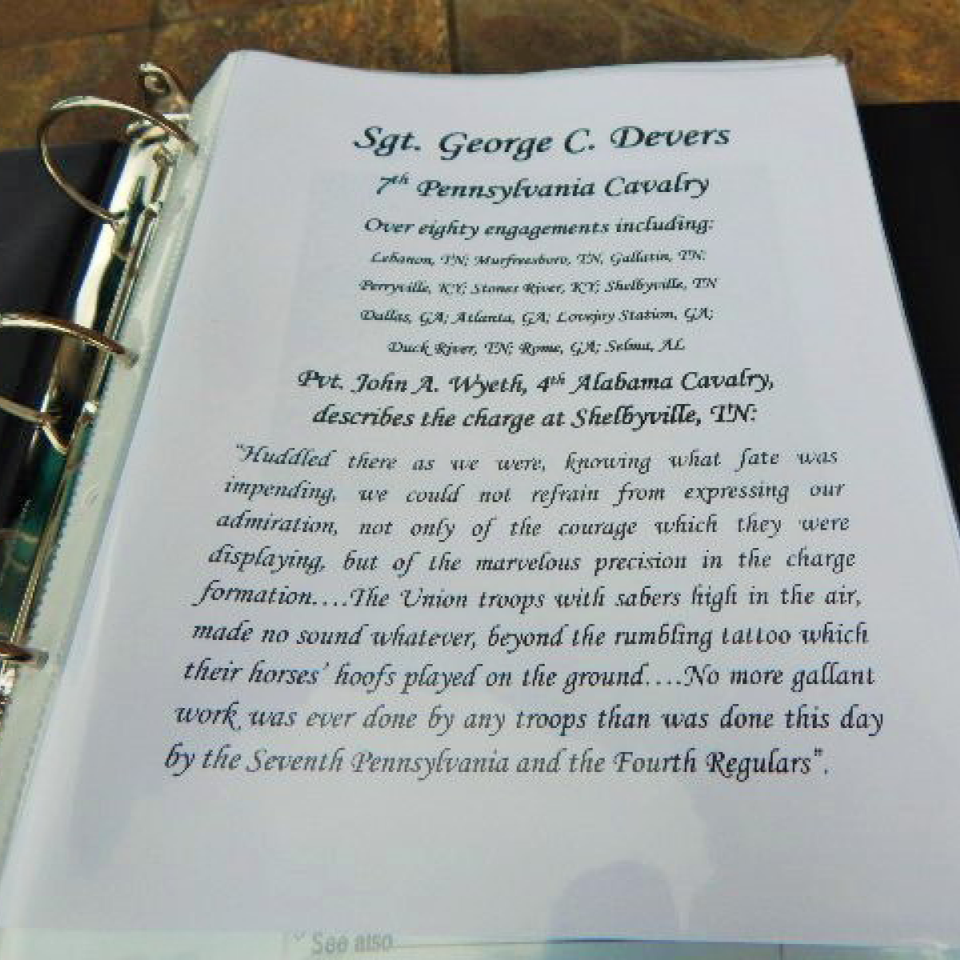 Sgt. George C. Devers
7th Pennsylvania Cavalry
Over eighty engagements including:
Lebanon, TN; Murfreesboro, TN, Gallatin, TN;
Perryville, KY; Stones River, KY; Shelbyville, TN
Dallas, GA; Atlanta, GA; Lovejoy Station, GA;
Duck River, TN; Rome, GA; Selma, AL
Pvt. John A. Wyeth, 4th Alabama Cavalry,
describes the charge at Shelbyville, TN:
"Huddled there as we were, knowing what fate was
impending, we could not refrain from expressing our
admiration, not only of the courage which they were
displaying, but of the marvelous precision in the charge
formation....The Union troops with sabers high in the air,
made no sound whatever, beyond the rumbling tattoo which
their horses' hoofs played on the ground....No more gallant
work was ever done by any troops than was done this day
by the Seventh Pennsylvania and the Fourth Regulars".
See also